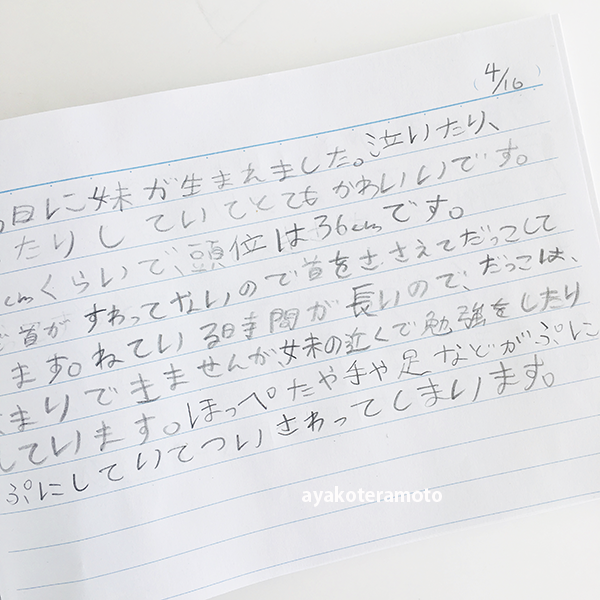 4/16
日に妹が生まれました。泣いたり、
たりしていてとてもかわいいです。
cmくらいで、頭位は36cmです。
首がすわってないので首をささえてだっこして
ます。ねている時間が長いので、だっこは、
まりできませんが、妹の近くで勉強をしたり
しています。ほっぺたや手や足などがぷに
ぷにしていてついさわってしまいます。
ayakoteramoto